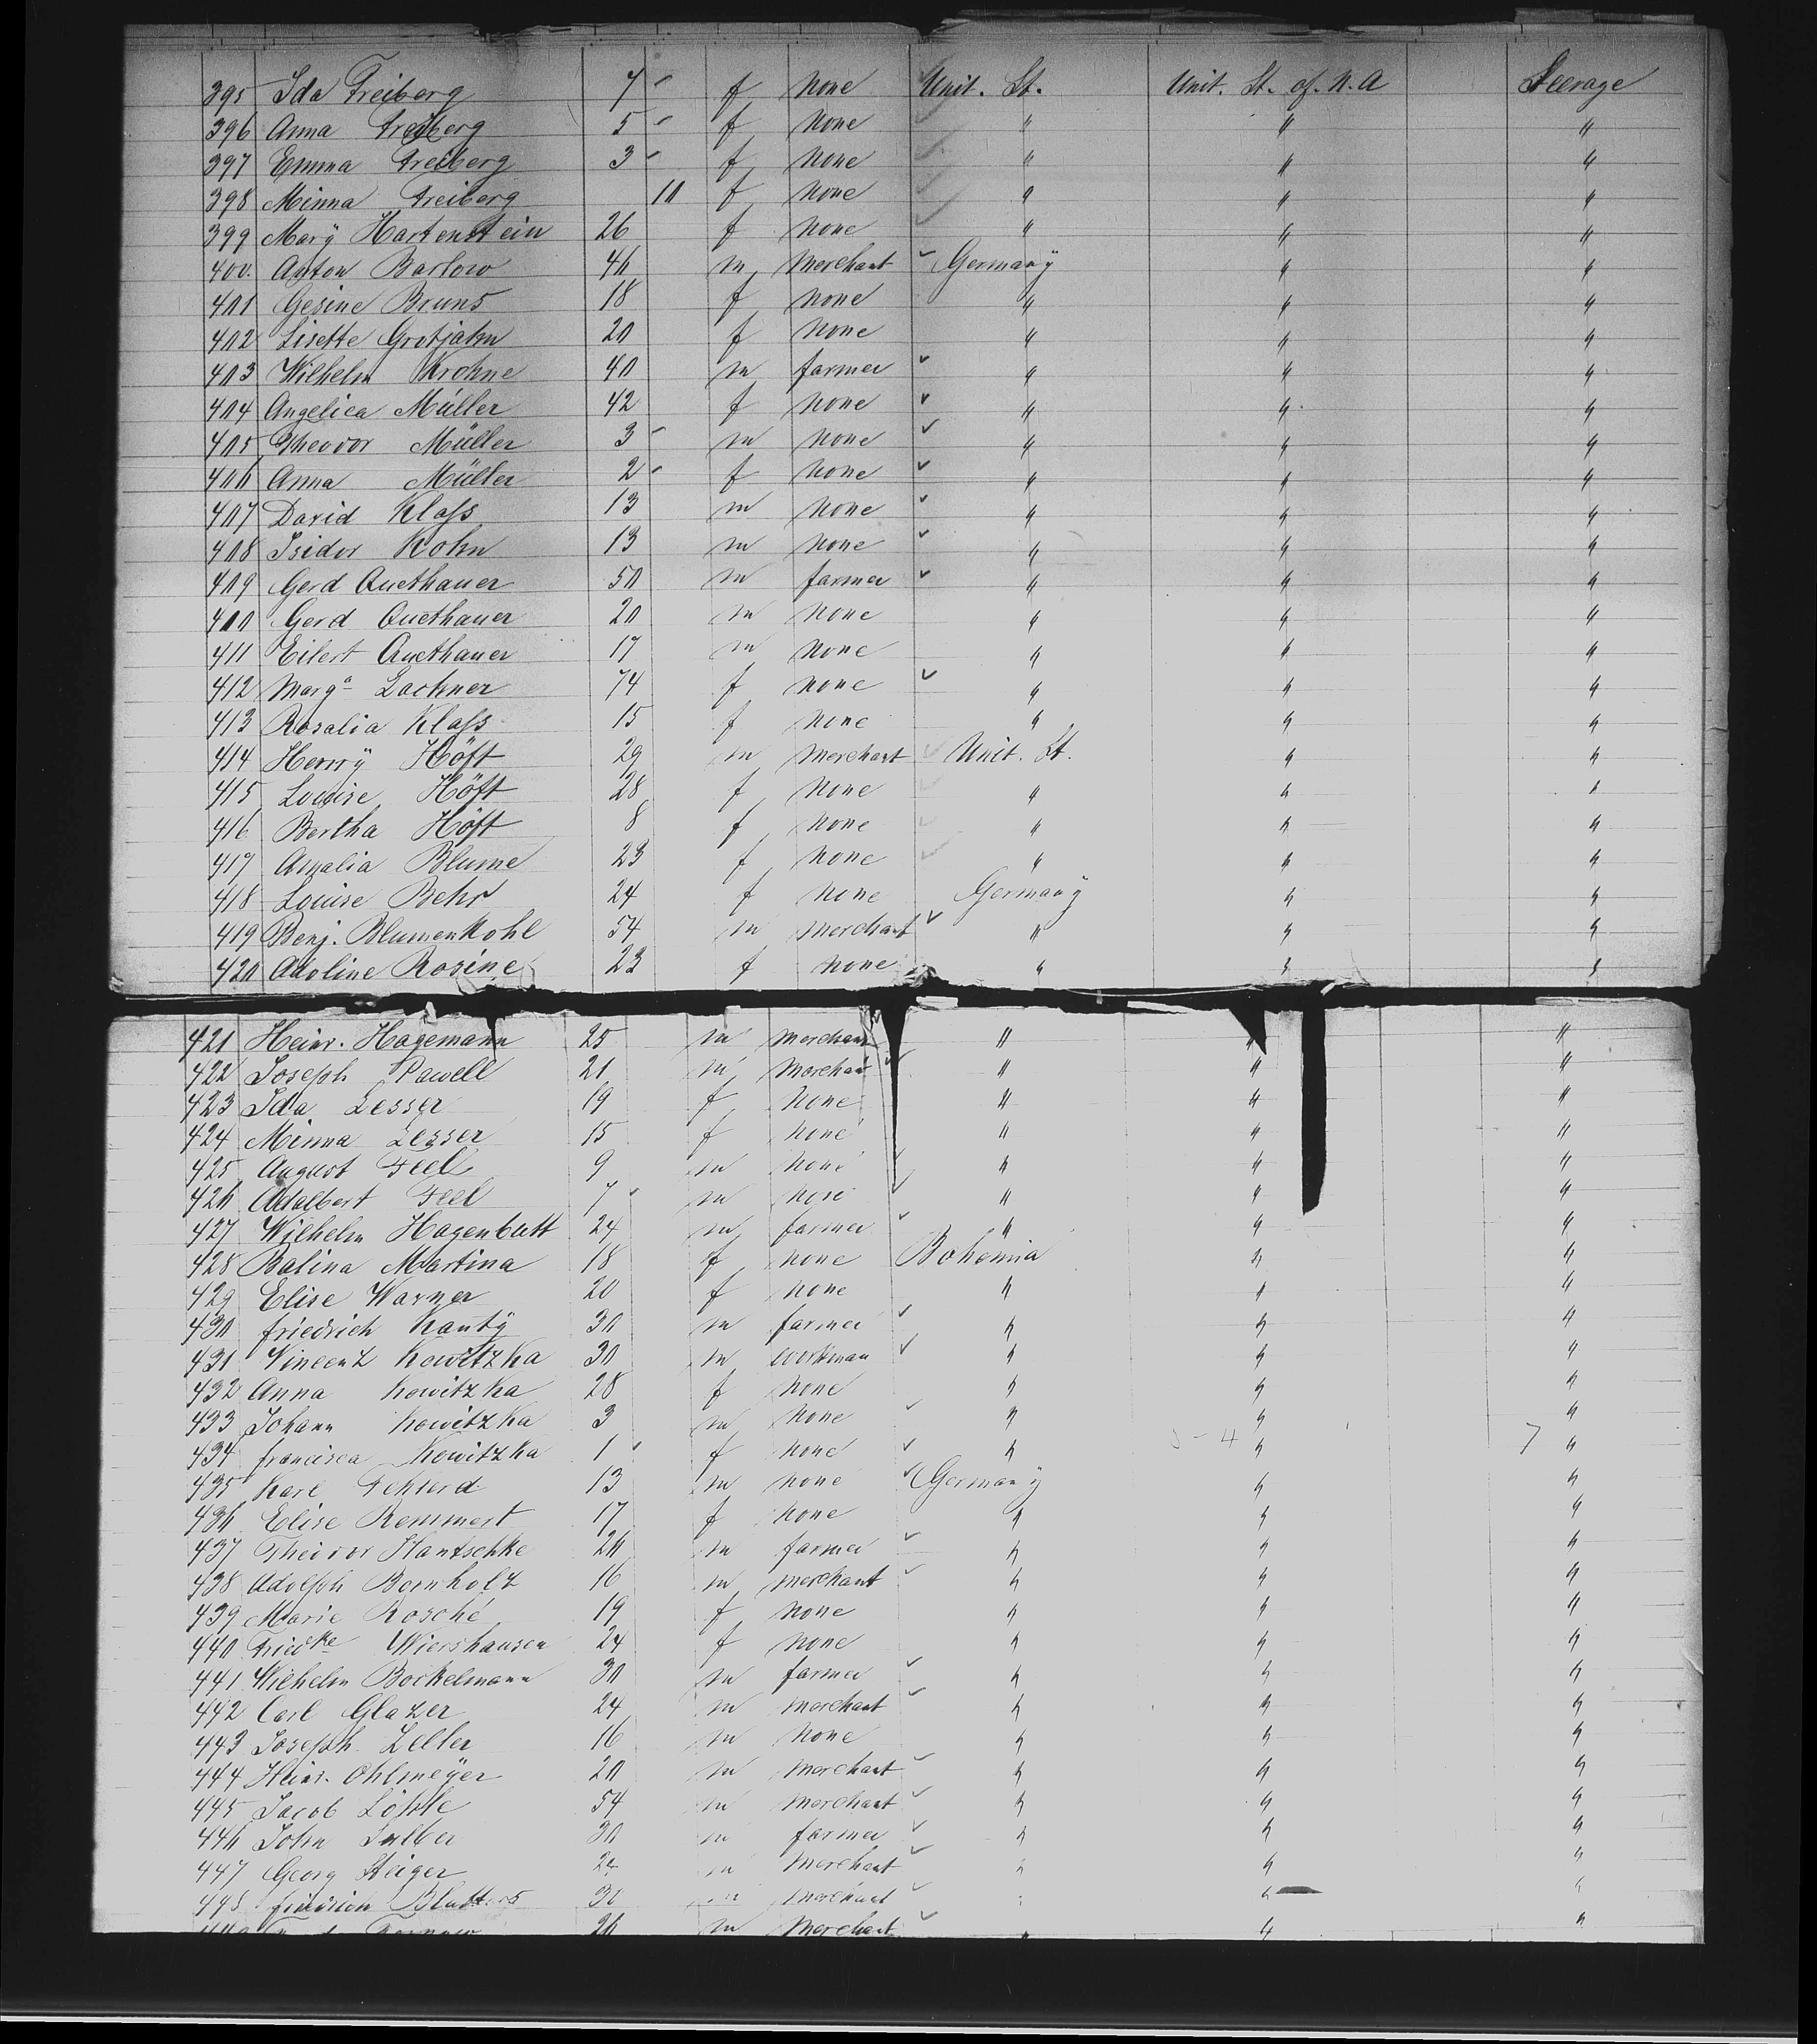 395 Ida Freiberg 7 - f none Unit. St. Unit. St. of. N. A Steerage
396 Anna Freiberg 5 - f none " " "
397 Emma Freiberg 3 - f none " " "
398 Minna Freiberg 10 f none " " "
399 Marÿ Hartenstein 26 f none " " "
400. Anton Barlow 46 m Merchant Germanÿ " "
401 Gesine Bruns 18 f none " " "
402 Lisette Grotjahn 20 f none " " "
403 Wilhelm Krohne 40 m farmer " " "
404 Angelica Müller 42 f none " " "
405 Theodor Müller 3 - m none " " "
406 Anna Müller 2 - f none " " "
407 David Klaſs 13 m none " " "
408 Isidor Kohn 13 m none " " "
409 Gerd Quethauer 50 m farmer " " "
410 Gerd Quethauer 20 m none " " "
411 Eilert Quethauer 17 m none " " "
412 Marg.a Lachner 74 f none " " "
413 Rosalia Klaſs 15 f none " " "
414 Henrÿ Höft 29 m Merchant Unit. St. " "
415 Louise Höft 28 f none " " "
416 Bertha Höft 8 f none " " "
417 Amalia Blume 23 f none " " "
418 Louise Behr 24 f none Germanÿ " "
419 Benj. Blumenkohl 54 m merchant " " "
420 Adoline Rosine 23 f none " " "
421 Heinr. Hagemann 25 m merchant " " "
422 Joseph Pawell 21 m merchant " " "
423 Ida Lesser 19 f none " " "
424 Minna Lesser 15 f none " " "
425 August Feel 9 m none " " "
426 Adalbert Feel 7 m none " " "
427 Wilhelm Hagenbutt 24 m farmer " " "
428 Balina Martina 18 f none Bohemia " "
429 Elise Warner 20 f none " " "
430 friedrich Kantÿ 30 m farmer " " "
431 Vincenz Kowitzka 30 m workman " " "
432 Anna Kowitzka 28 f none " " "
433 Johann Kowitzka 3 m none " " "
434 francisca Kowitzka 1 f none " " "
435 Karl 13 m none Germanÿ " "
436 Elise Remmert 17 f none " " "
437 Theodor Hantschke 26 m farmer " " "
438 Adolph Bernholz 16 m merchant " " "
439 Marie Rosché 19 f none " " "
440 Friedke Wiershausen 24 f none " " "
441 Wilhelm Bockelmann 30 m farmer " " "
442 Carl Glazer 24 m merchant " " "
443 Joseph Zeller 16 m none " " "
444 Heinr. Ohlmeÿer 20 m merchant " " "
445 Jacob Löhle 54 m merchant " " "
446 John 30 m farmer " " "
447 Georg Steiger 24 m Merchant " " "
448 friedrich 30 m merchant " " "
26 m Merchant " " "